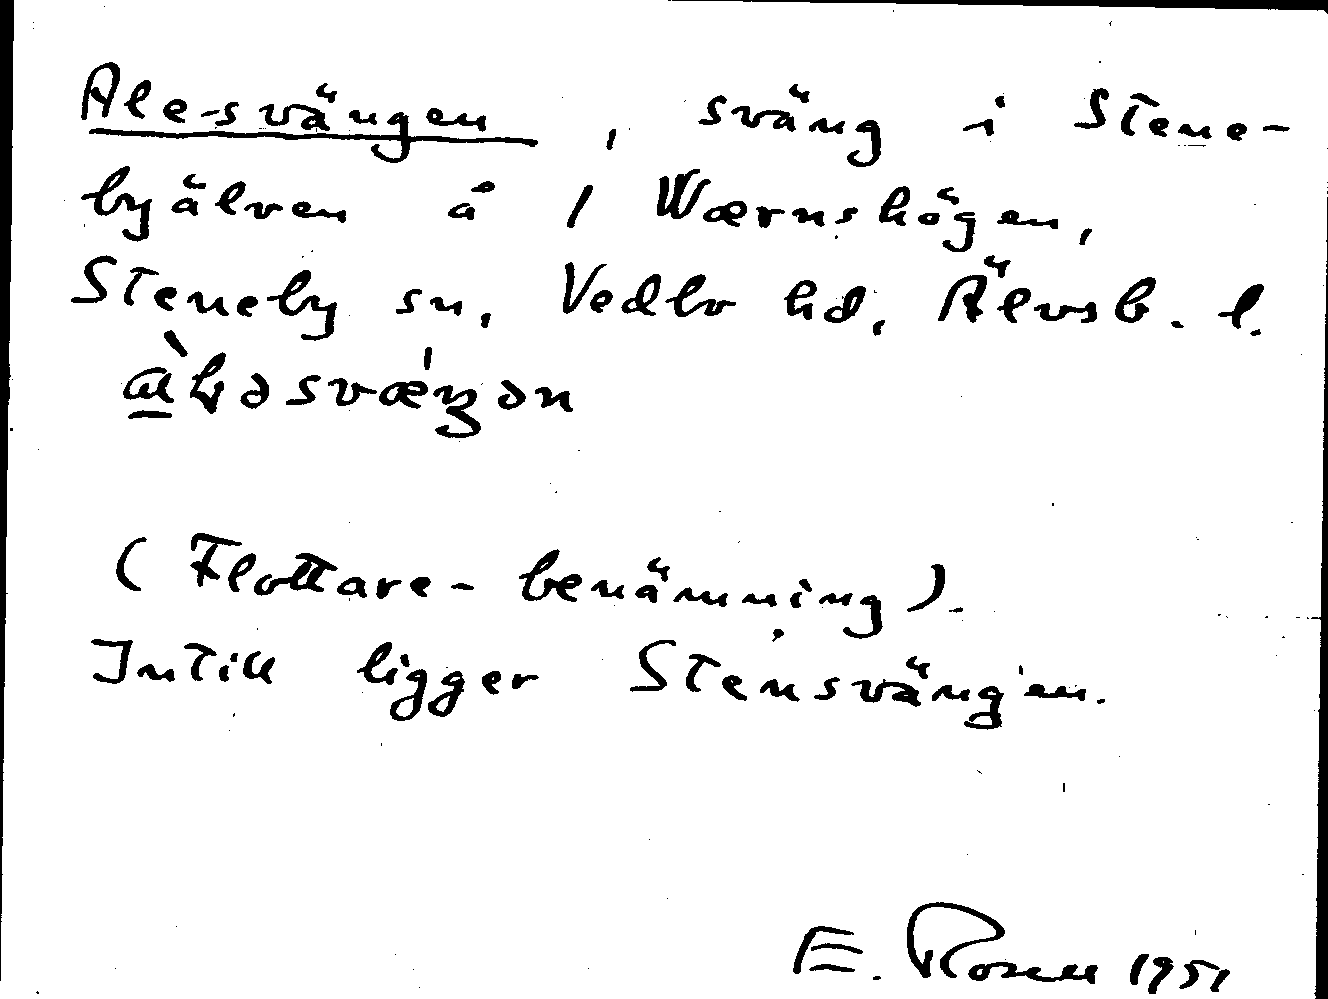 Ale-svängen, sväng i Stene-
byälven å / Wærnshögen,
Steneby sn, Vedbo hd, Älvsb. l.
(Flottare-benämning).
Intill ligger Stensvängen.
E. Rosell 1951